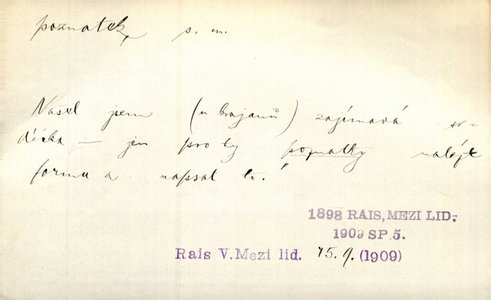 poznatek, s. m.
Našel jsem (u krajanů) zajímavá sr-
déčka — jen pro ty poznatky nalézt
formu a napsat to.
1898 RAIS, MEZI LID.
1909 SP. 5.
Rais V. Mezi lid. 15. 9. (1909)